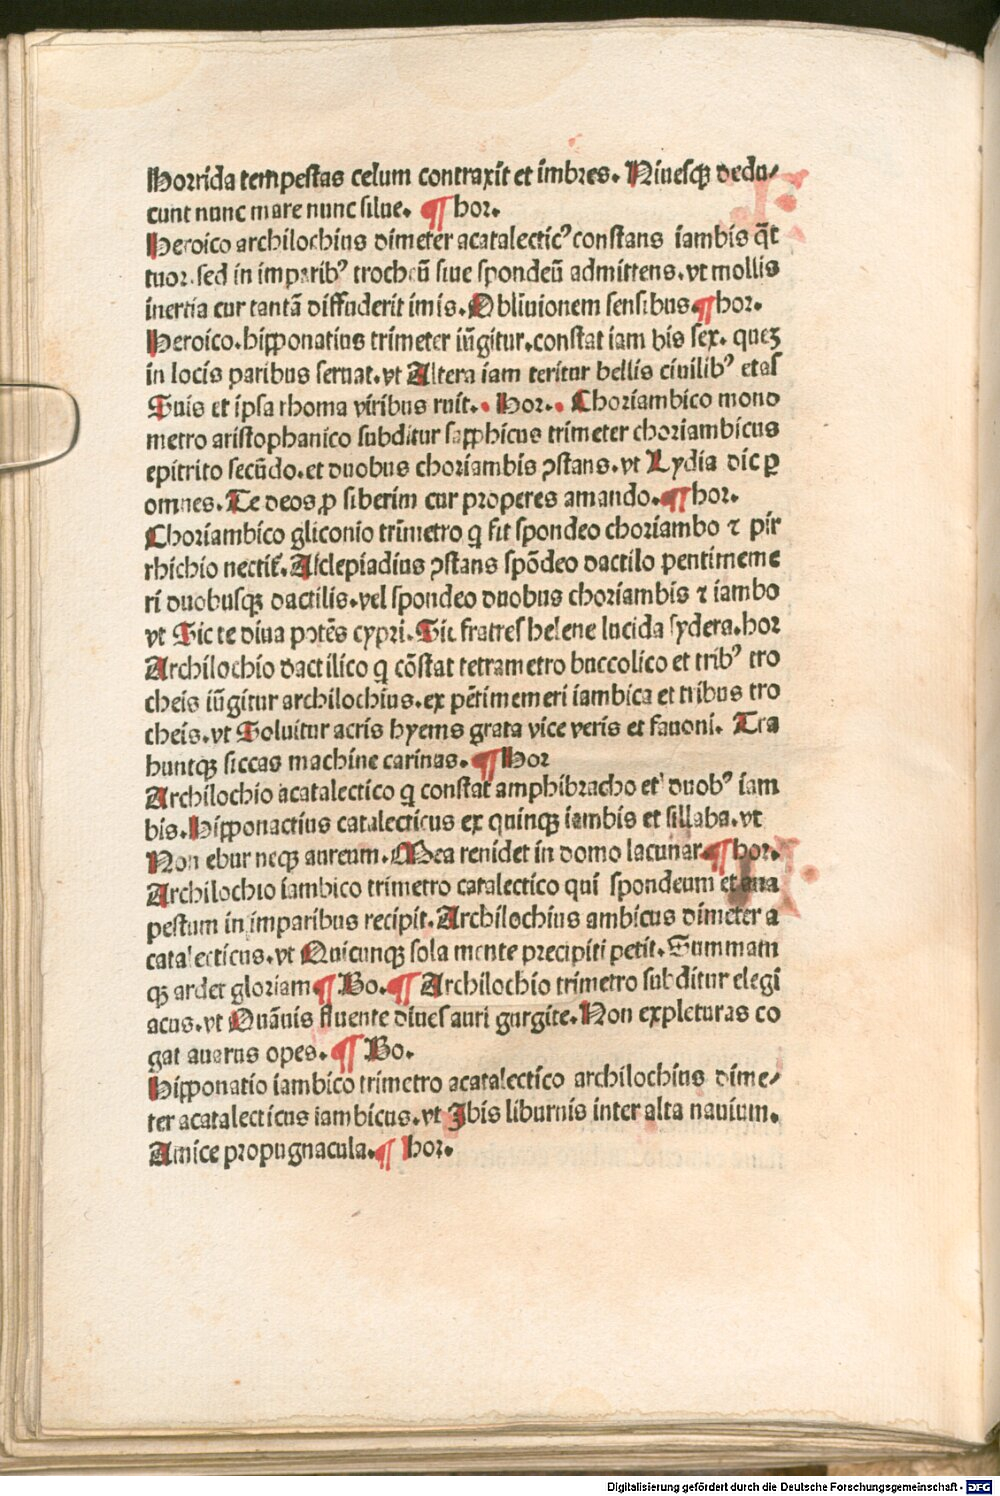 Horrida tempestas celum contraxit et imbres. Niuesqꝫ dedu⸗
cunt nunc mare nunc silue. ¶ hor.
Heroico archilochius dimeter acatalecticꝰ constans iambis q̃t
tuor. sed in imparibꝰ trocheũ siue spondeũ admittens. vt mollis
inertia cur tantã diffuderit imis. Obliuionem sensibus. ¶ hor.
Heroico. hipponatius trimeter iũgitur. constat iam bis sex. quez
in locis paribus seruat. vt Altera iam teritur bellis ciuilibꝰ etas
Suis et ipsa rhoma viribus ruit. Hor. Choriambico mono
metro aristophanico subditur sapphicus trimeter choriambicus
epitrito secũdo. et duobus choriambis ꝯstans. vt Lydia dic ꝑ
omnes. Te deos ꝓ siberim cur properes amando. ¶ hor.
Choriambico gliconio trimetro q fit spondeo choriambo ⁊ pir
rhichio nectit̃. Asclepiadius ꝯstans spõdeo dactilo pentimeme
ri duobusqꝫ dactilis. vel spondeo duobus choriambis ⁊ iambo
vt Sic te diua potẽs cypri. Sic fratres helene lucida sydera. hor
Archilochio dactilico q cõstat tetrametro buccolico et tribꝰ tro
cheis iũgitur archilochius. ex pẽtimemeri iambica et tribus tro
cheis. vt Soluitur acris hyems grata vice veris et fauoni. Tra
huntqꝫ siccas machine carinas. ¶ Hor
Archilochio acatalectico q constat amphibracho et duobꝰ iam
bis. Hipponactius catalecticus ex quinqꝫ iambis et sillaba. vt
Non ebur neqꝫ aureum. Mea renidet in domo lacunar. ¶ hor.
Archilochio iambico trimetro catalectico qui spondeum et ana
pestum in imparibus recipit. Archilochius ambicus dimeter a
catalecticus. vt Quicunqꝫ sola mente precipiti petit. Summam
qꝫ ardet gloriam ¶ Bo. ¶ Archilochio trimetro subditur elegi
acus. vt Quãuis fluente diues auri gurgite. Non expleturas co
gat auarus opes. ¶ Bo.
Hipponatio iambico trimetro acatalectico archilochius dime⸗
ter acatalecticus iambicus. vt Ibis liburnis inter alta nauium.
Amice propugnacula. ¶ hor.
Digitalisierung gefördert durch die Deutsche Forschungsgemeinschaft - DFG